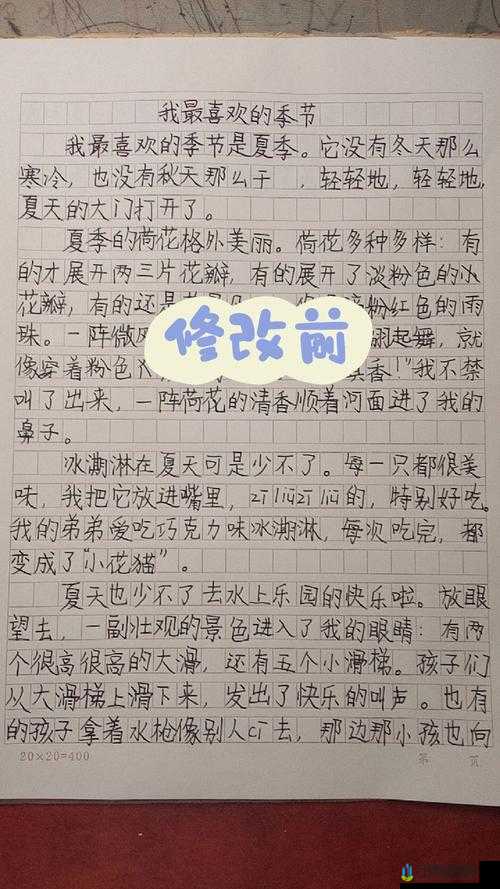 我最喜欢的季节
我最喜欢的季节是夏季。它没有冬天那么
寒冷，也没有秋天那么干，轻轻地，轻轻地，
夏天的大门打开了。
夏季的荷花格外美丽。荷花多种多样：有
的才展开两三片花瓣，有的展开了淡粉色的小
花瓣，有的还是 粉红色的雨
珠。一阵微风 翩起舞，就
像穿着粉色 真香！"我不禁
叫了出来，一阵荷花的清香顺着河面进了我的
鼻子。
修改前
冰淇淋在夏天可是少不了。每一只都很美
味，我把它放进嘴里，zī liū zī liū的，特别好吃。
我的弟弟爱吃巧克力味冰淇淋，每次吃完，都
变成了“小花猫”。
夏天也少不了去水上乐园的快乐啦。放眼
望去，一副壮观的景色进入了我的眼睛：有两
个很高很高的大滑，还有五个小滑梯。孩子们
从大滑梯上滑下来，发出了快乐的叫声。也有
的孩子拿着水枪像别人cī去，那边那小孩也向
20×20=400
第 页